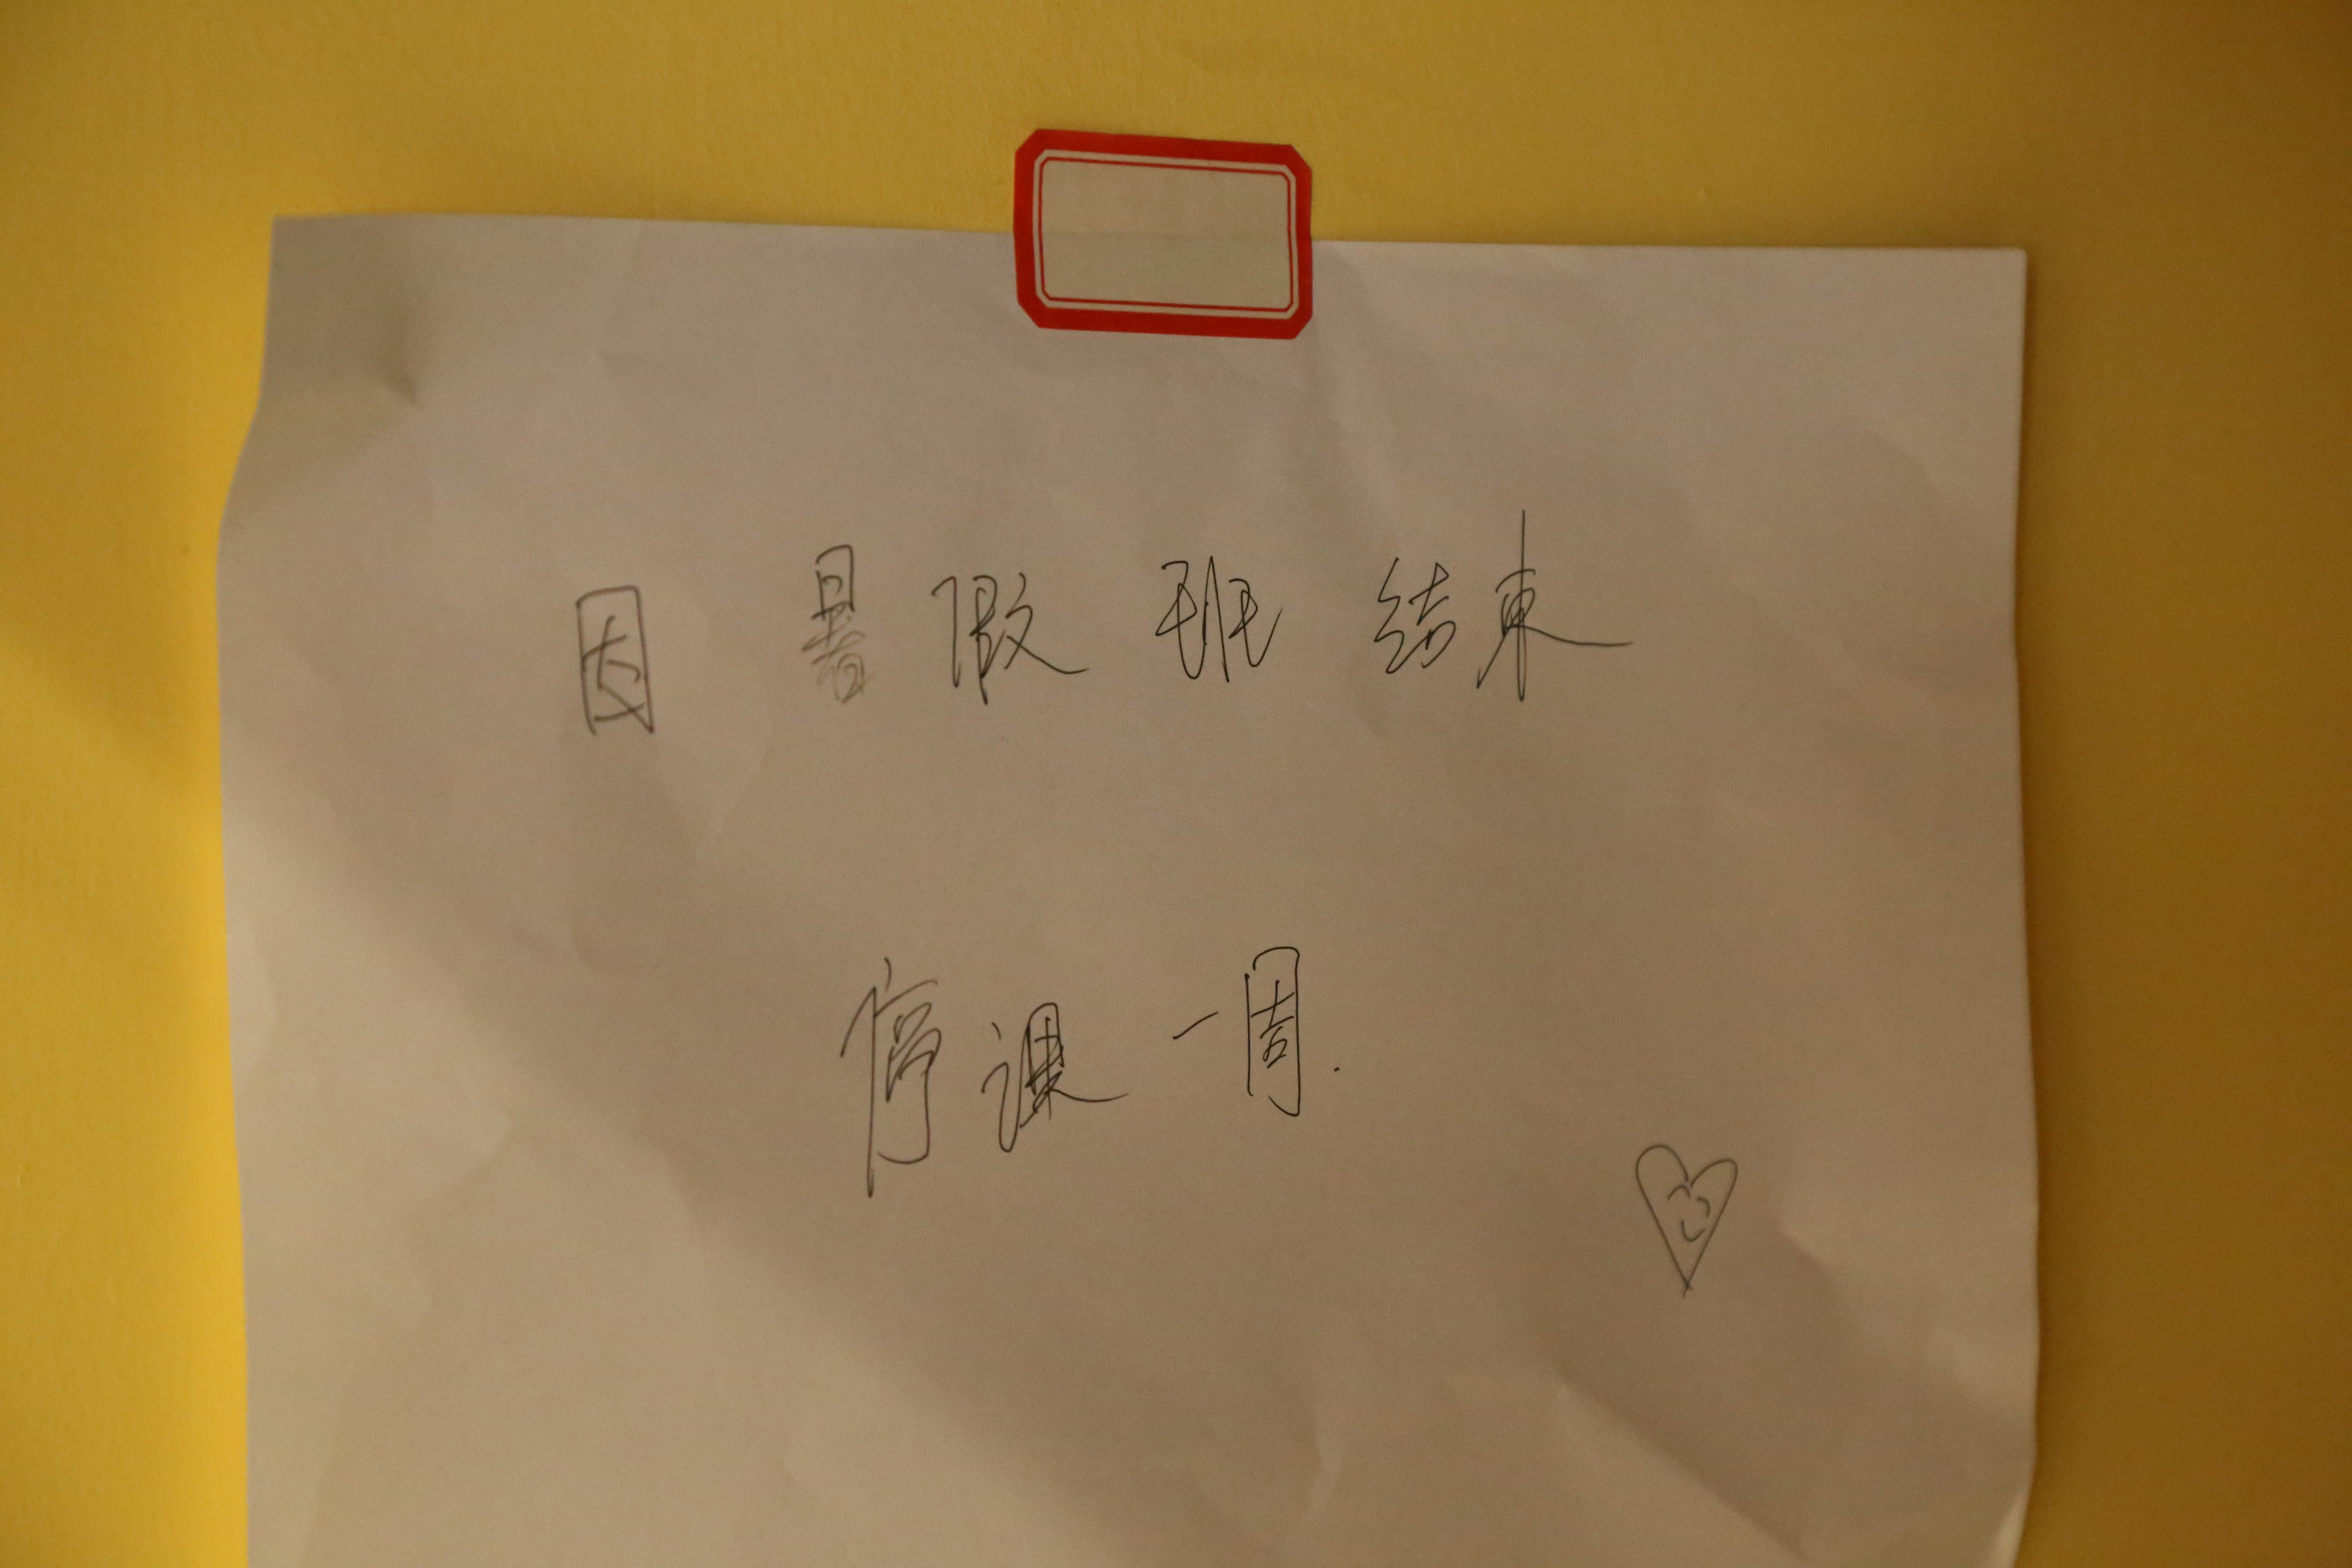 因暑假班结束
停课一周.